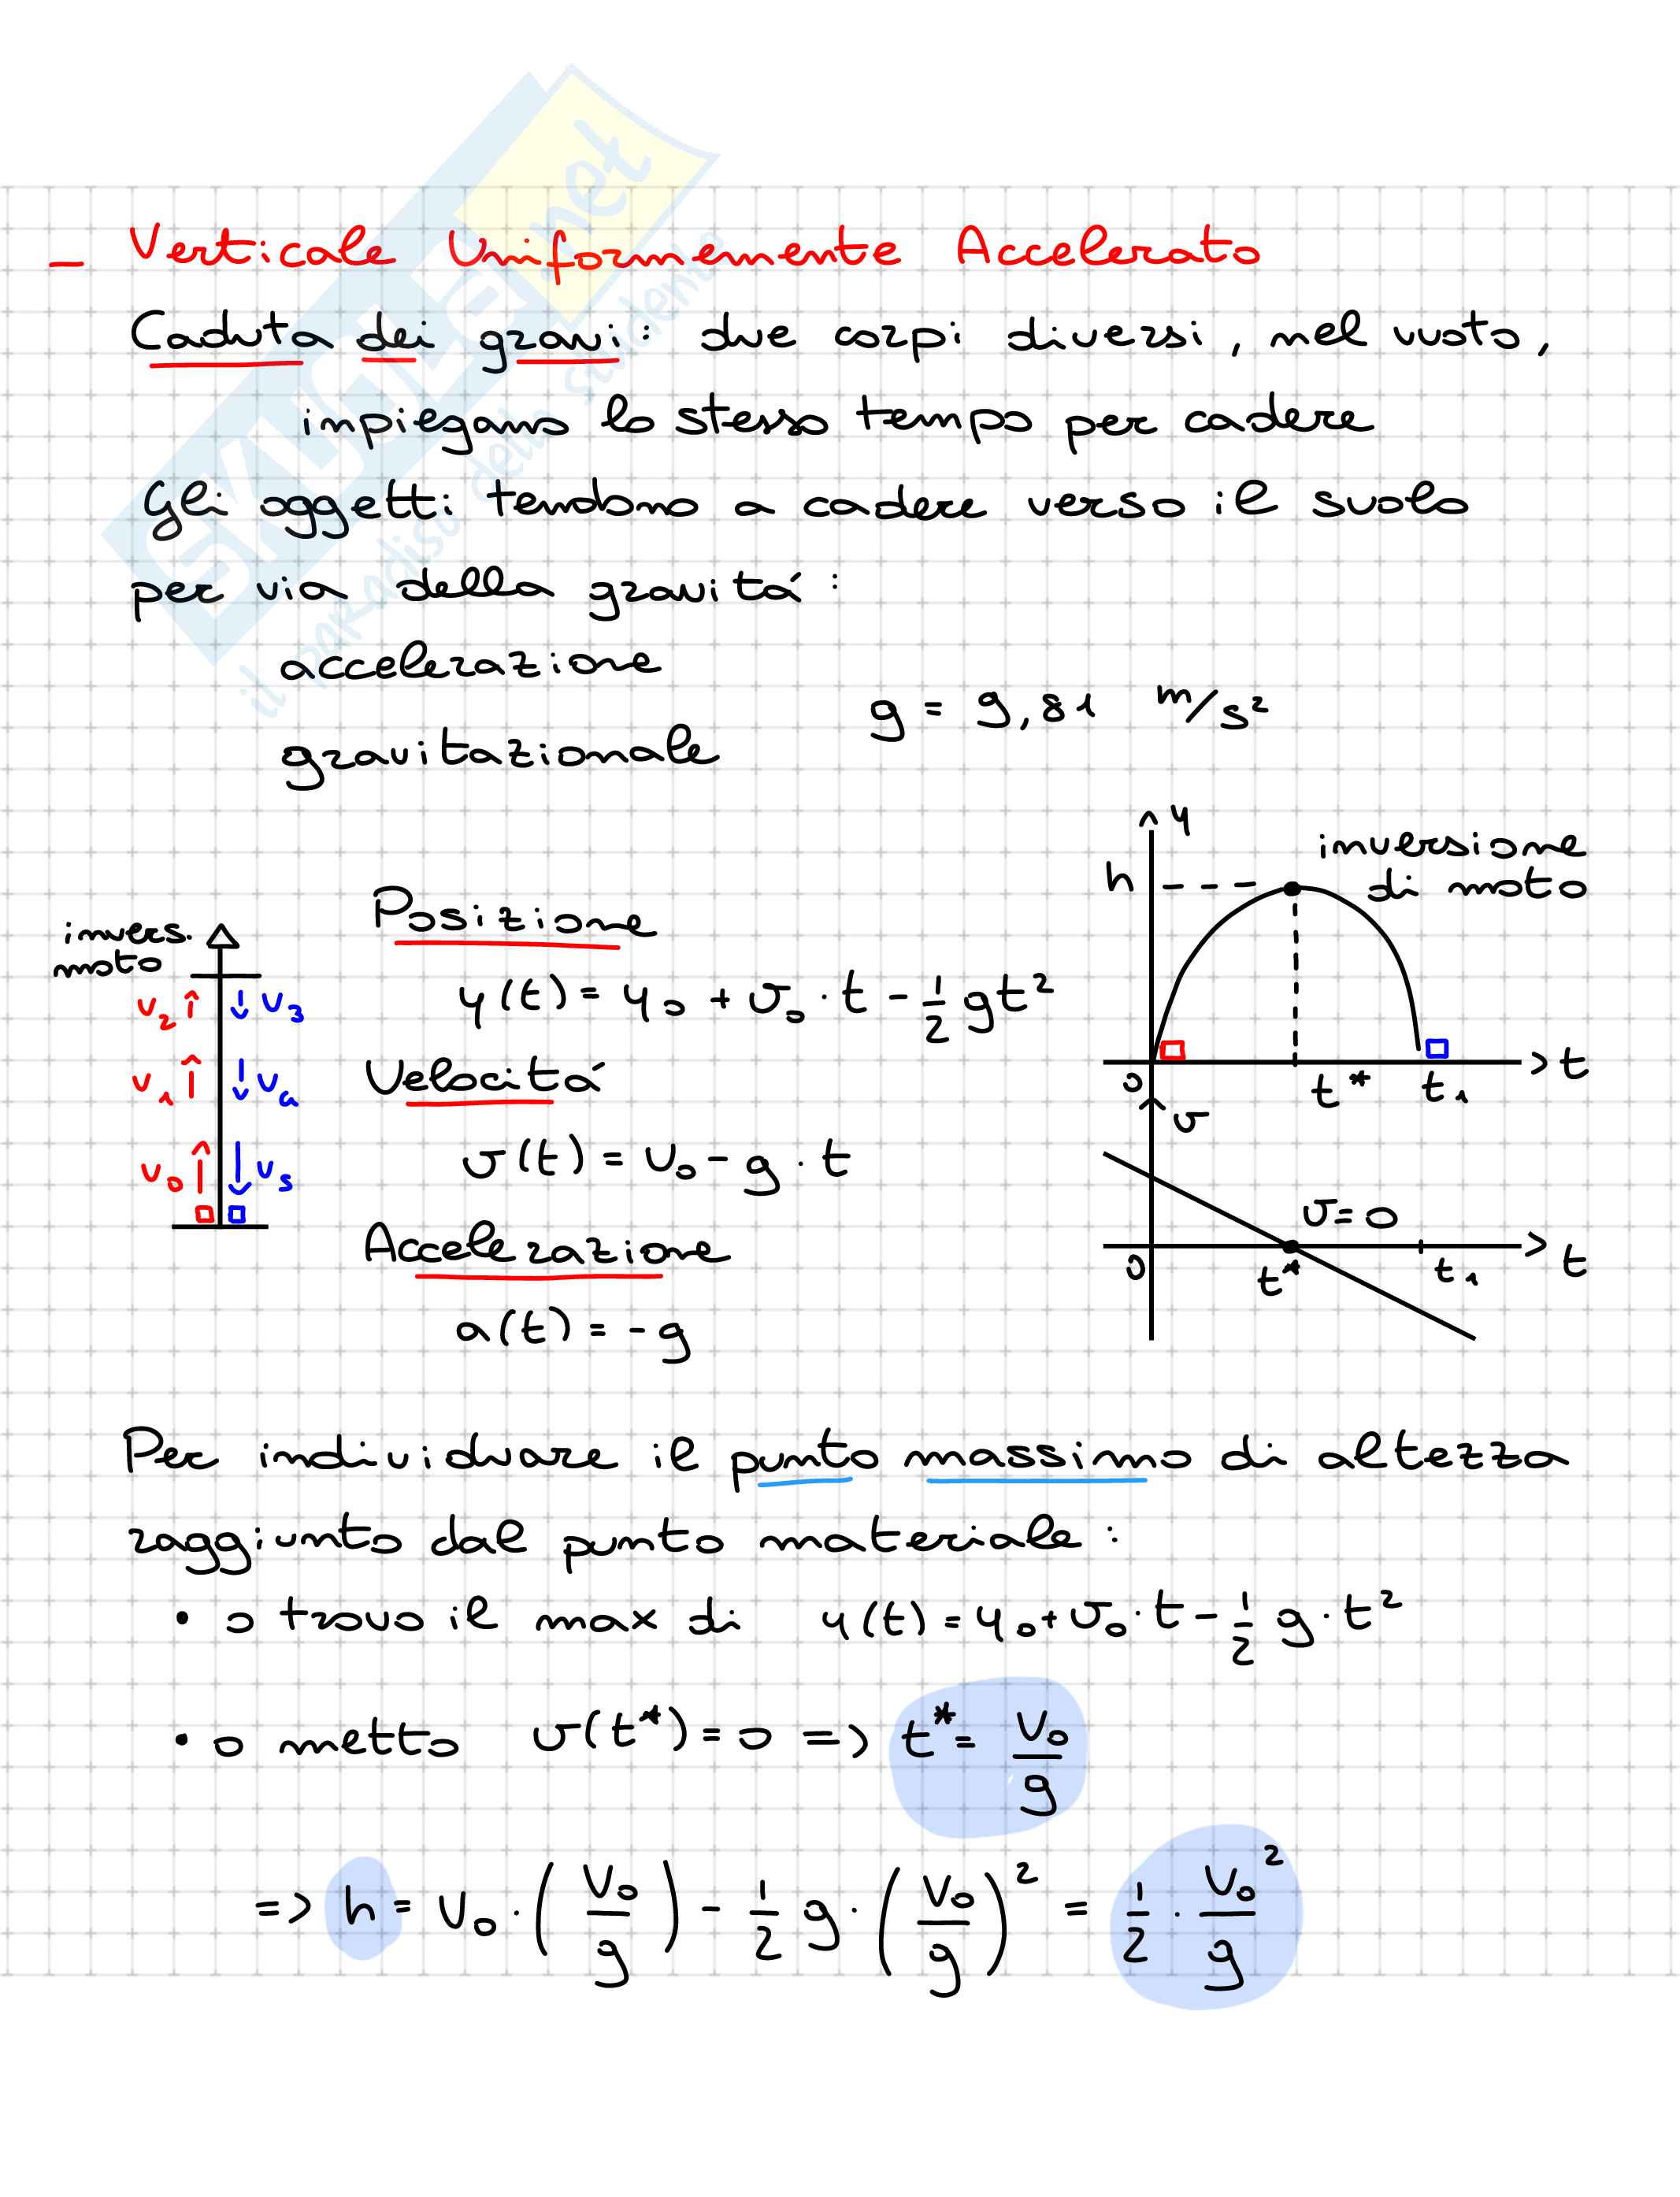 SKUOLA.net
il paradiso dello studente
- Verticale Uniformemente Accelerato
Caduta dei gravi: due corpi diversi, nel vuoto,
impiegano lo stesso tempo per cadere
Gli oggetti tendono a cadere verso il suolo
per via della gravitá:
accelerazione
gravitazionale
g = 9,81 m/s²
invers.
moto
v₂ v₃
v₁ v₄
v₀ v₅
Posizione
y(t) = y₀ + v₀ · t - 1/2 gt²
Velocitá
v(t) = v₀ - g · t
Accelerazione
a(t) = -g
y
inversione
di moto
h
0 t* t₁ t
v
v=0
0 t* t₁ t
Per individuare il punto massimo di altezza
raggiunto dal punto materiale:
• o trovo il max di y(t) = y₀ + v₀ · t - 1/2 g · t²
• o metto v(t*) = 0 => t* = v₀/g
=> h = v₀ · (v₀/g) - 1/2 g · (v₀/g)² = 1/2 · v₀²/g